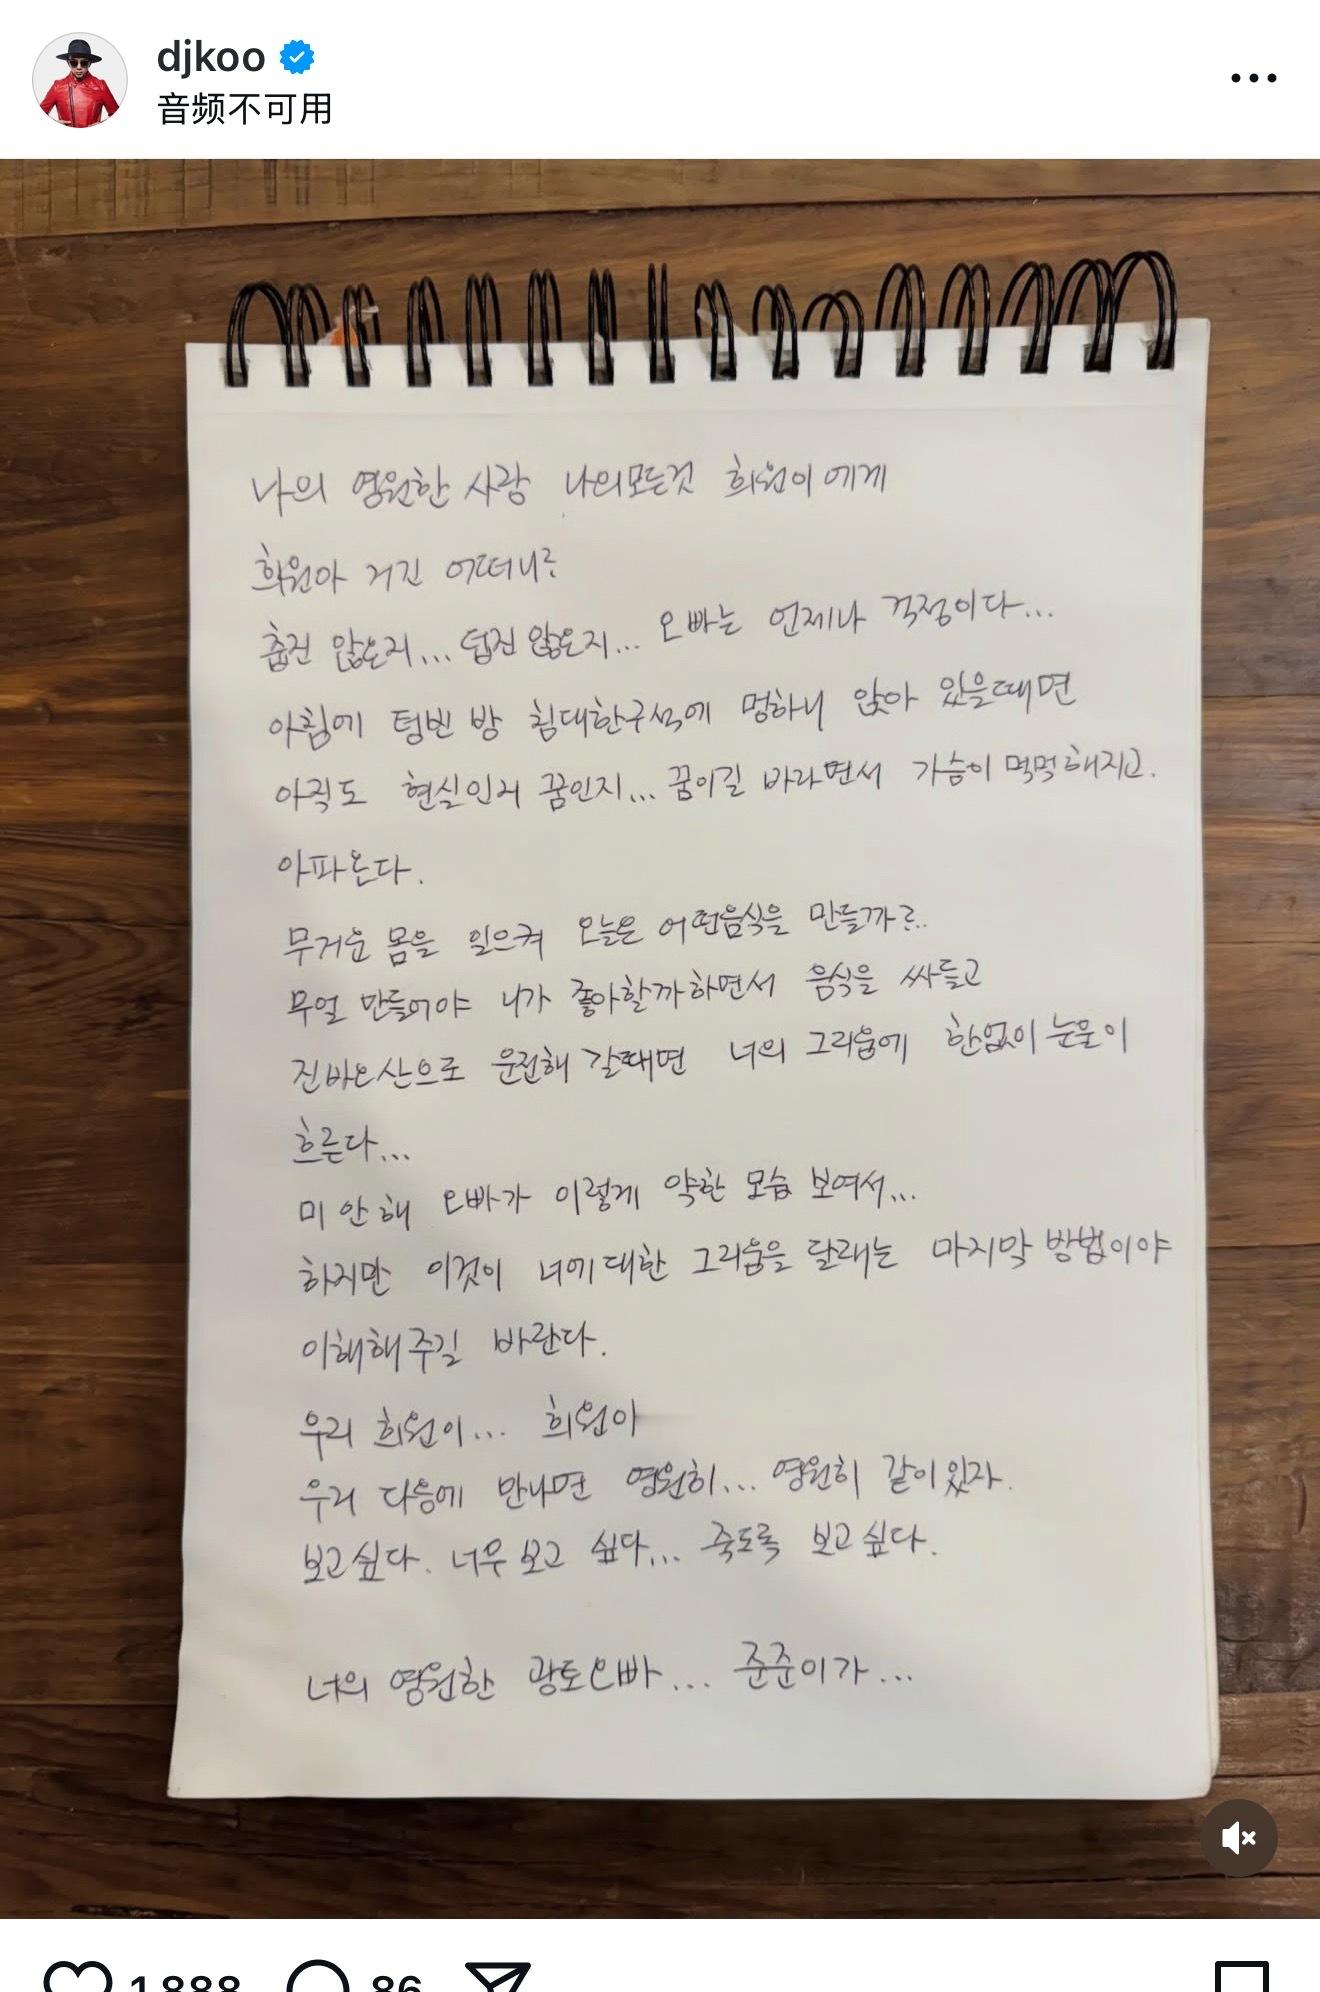 djkoo
音频不可用
나의 영원한 사랑 나의모든것 희원이에게
희원아 거긴 어떠니?
춥진 않은지... 덥진 않은지... 오빠는 언제나 걱정이다...
아침에 텅빈 방 침대한구석에 멍하니 앉아 있을때면
아직도 현실인지 꿈인지... 꿈이길 바라면서 가슴이 먹먹해지고.
아파온다.
무거운 몸을 일으켜 오늘은 어떤음식을 만들까?..
무얼 만들어야 니가 좋아할까하면서 음식을 싸들고
진바오산으로 운전해 갈때면 너의 그리움에 한없이 눈물이
흐른다...
미안해 오빠가 이렇게 약한 모습 보여서...
하지만 이것이 너에대한 그리움을 달래는 마지막 방법이야
이해해주길 바란다.
우리 희원이... 희원아
우리 다음에 만나면 영원히... 영원히 같이있자.
보고싶다. 너무 보고 싶다... 죽도록 보고싶다.
너의 영원한 광토오빠... 준준이가...
1,888 86